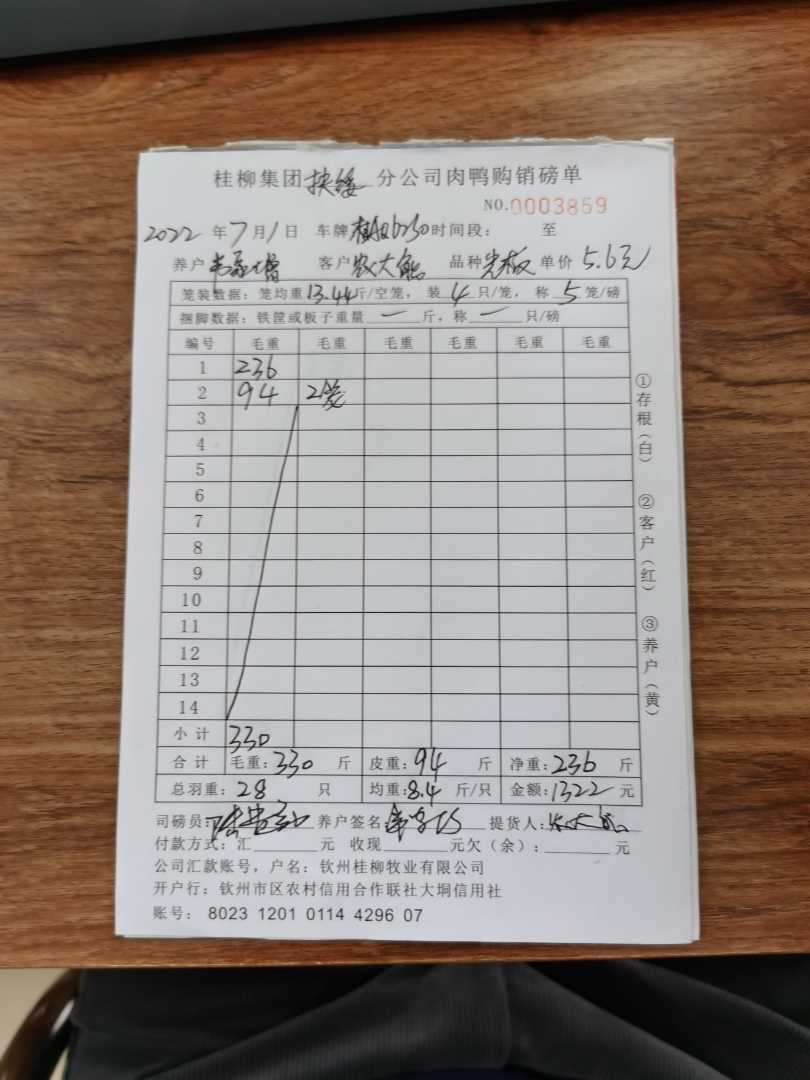 桂柳集团扶绥分公司肉鸭购销磅单
NO.0003859
2022年7月1日 车牌 时间段: 至
养户 客户农大 品种光板 单价5.6元
笼装数据: 笼均重13.44斤/空笼, 装4只/笼, 称5笼/磅
捆脚数据: 铁筐或板子重量一斤, 称一只/磅
编号 毛重 毛重 毛重 毛重 毛重 毛重
1 236
2 94 2笼
3
4
5
6
7
8
9
10
11
12
13
14
小计 330
合计 毛重:330斤 皮重:94斤 净重:236斤
总羽重:28只 均重:8.4斤/只 金额:1322元
司磅员: 养户签名 提货人:
付款方式: 汇 元 收现 元欠(余): 元
公司汇款账号, 户名: 钦州桂柳牧业有限公司
开户行: 钦州市区农村信用合作联社大垌信用社
账号: 8023 1201 0114 4296 07
①存根(白)
②客户(红)
③养户(黄)